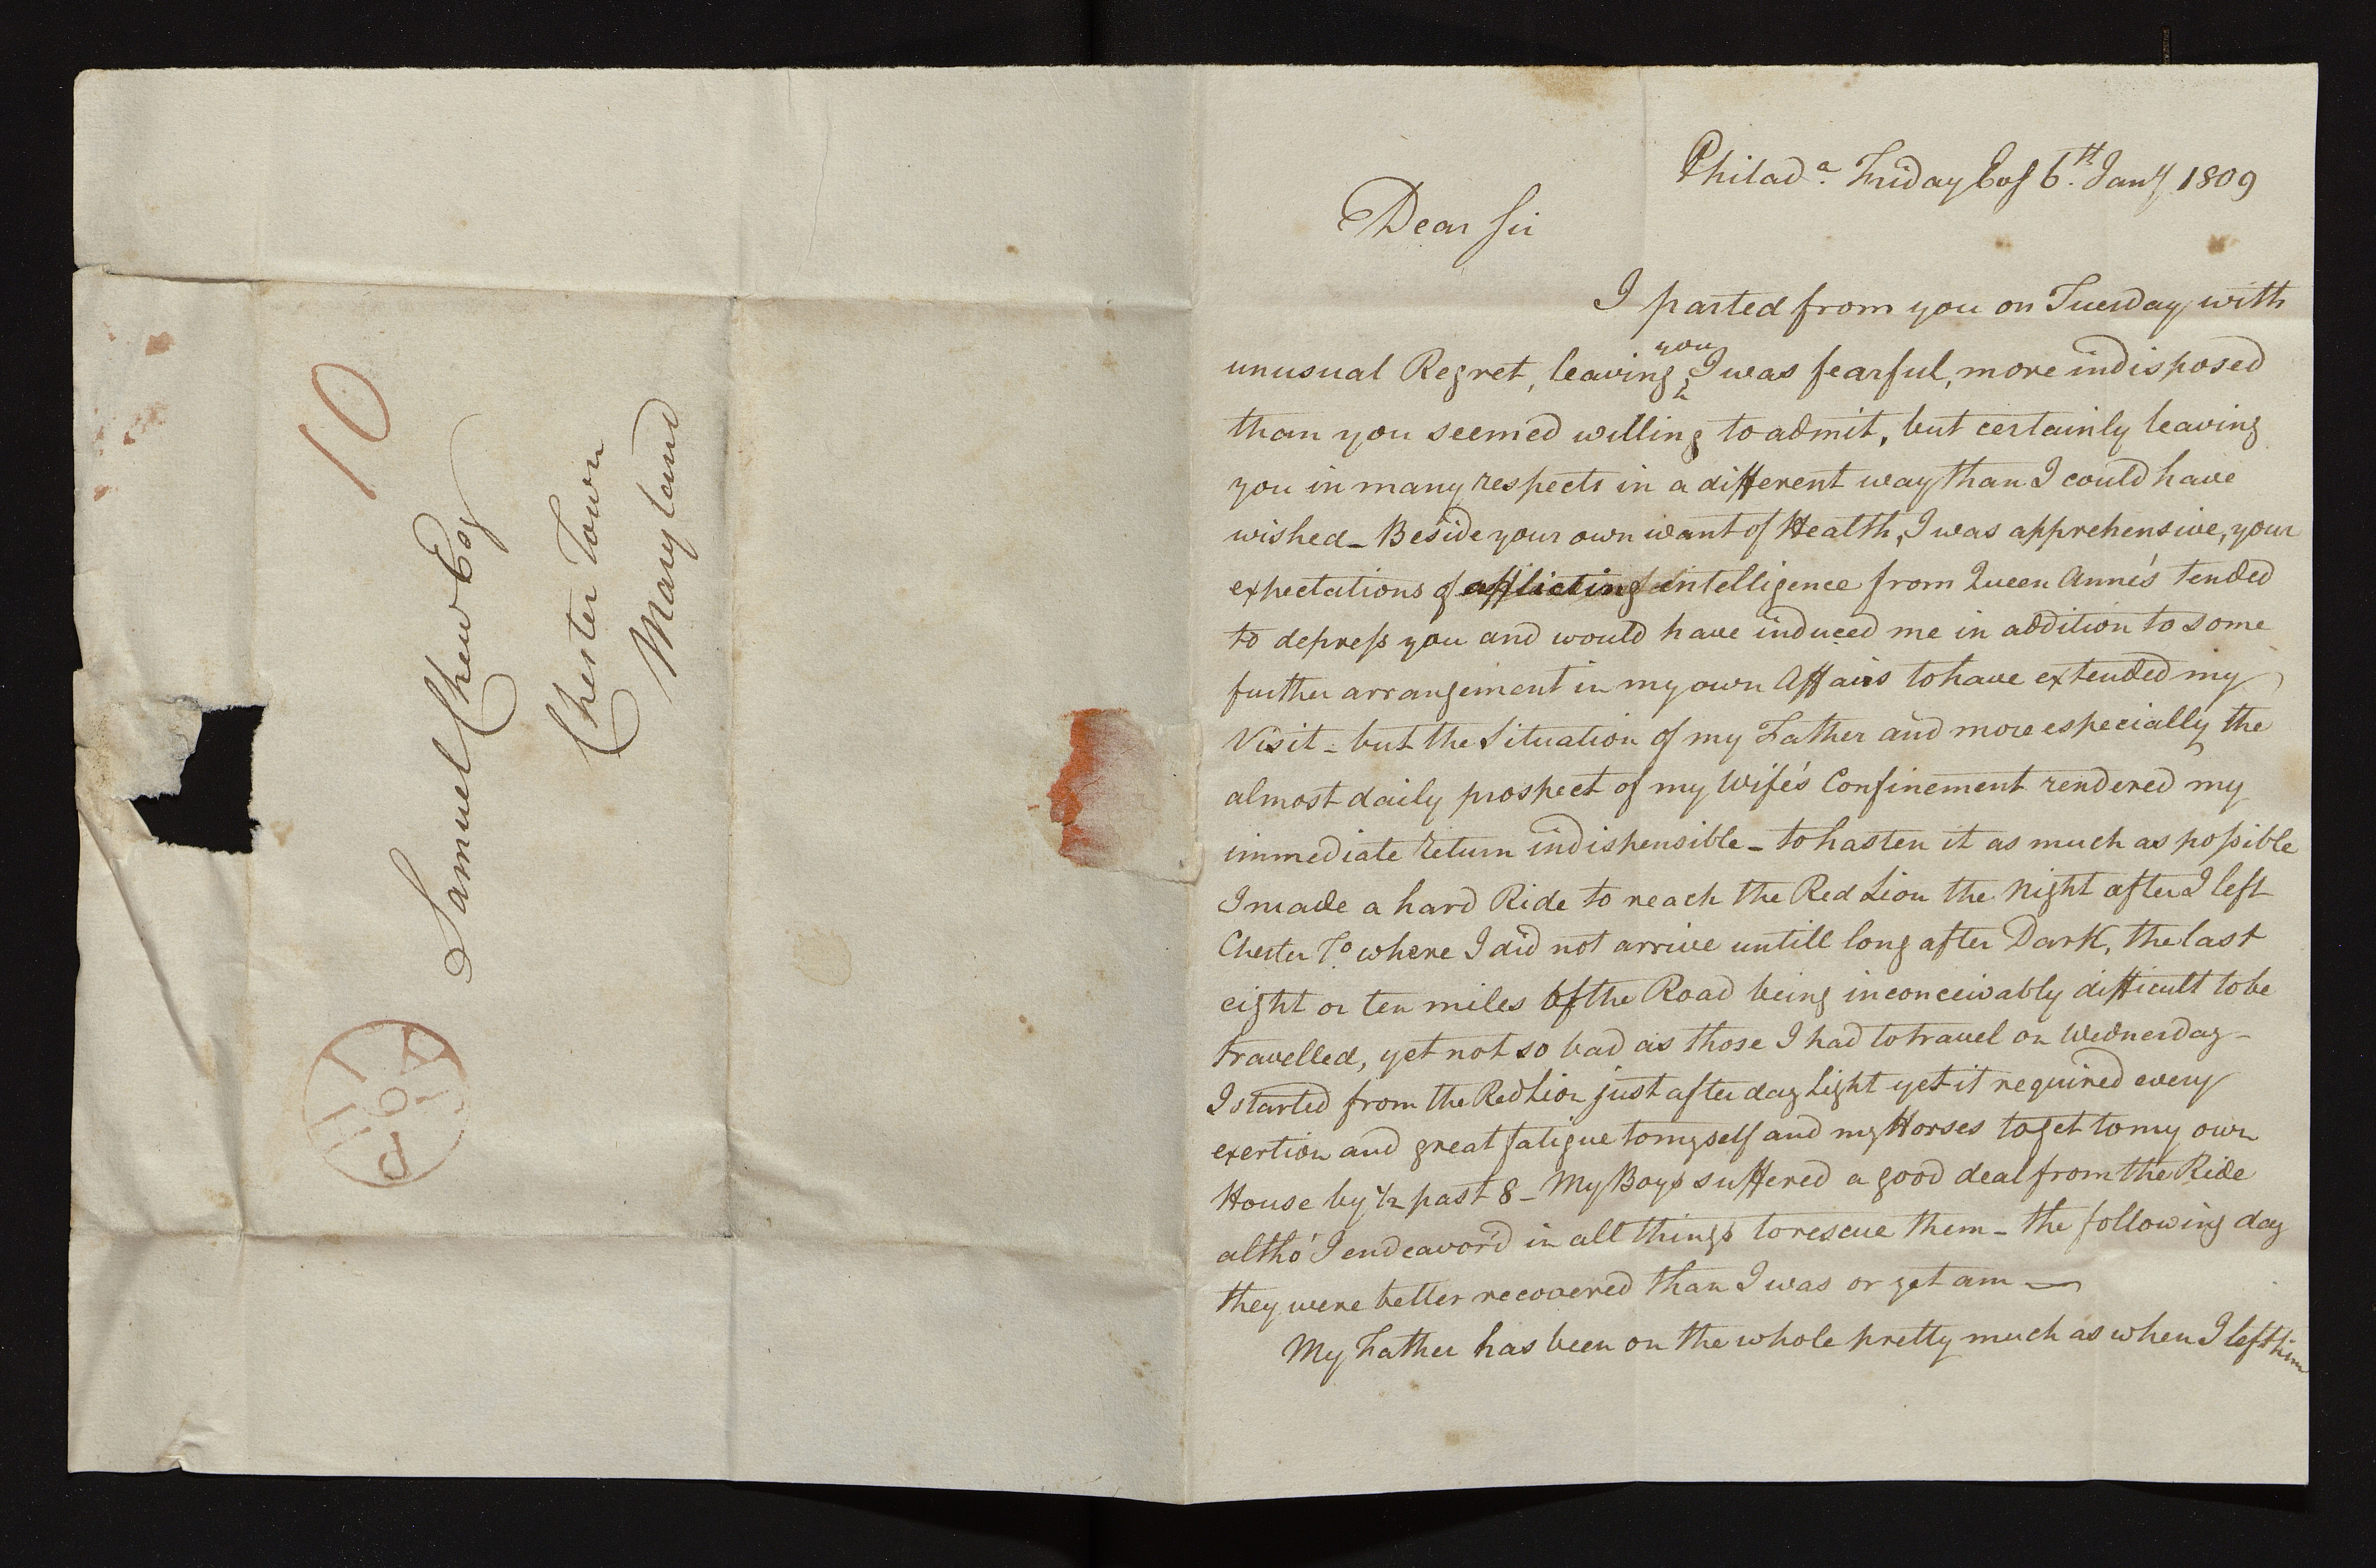 10
Samuel Chew Esq
Chester Town
Maryland
PHI
6 JA
Philad.a Friday Evg 6.th Jany 1809
Dear Sir
I parted from you on Tuesday with
unusual Regret, leaving you I was fearful, more indisposed
than you seem'd willing to admit, but certainly leaving
you in many respects in a different way than I could have
wished_ Beside your own want of Health, I was apprehensive, your
expectations of afflicting Intelligence from Queen Anne's tended
to depress you and would have induced me in addition to some
further arrangement in my own Affairs to have extended my
Visit - but the Situation of my Father and more especially the
almost daily prospect of my Wife's Confinement rendered my
immediate return indispensible _ to hasten it as much as possible
I made a hard Ride to reach the Red Lion the Night after I left
Chester To. where I did not arrive untill long after Dark, the last
eight or ten miles of the Road being inconceivably difficult to be
travelled, yet not so bad as those I had to travel on Wednesday _
I started from the Red Lion just after day Light yet it required every
exertion and great fatigue to myself and my Horses to get to my own
House by 1/2 past 8 _ My Boys suffered a good deal from the Ride
altho' I endeavor'd in all things to rescue them _ the following day
they were better recovered than I was or yet am __
My Father has been on the whole pretty much as when I left him